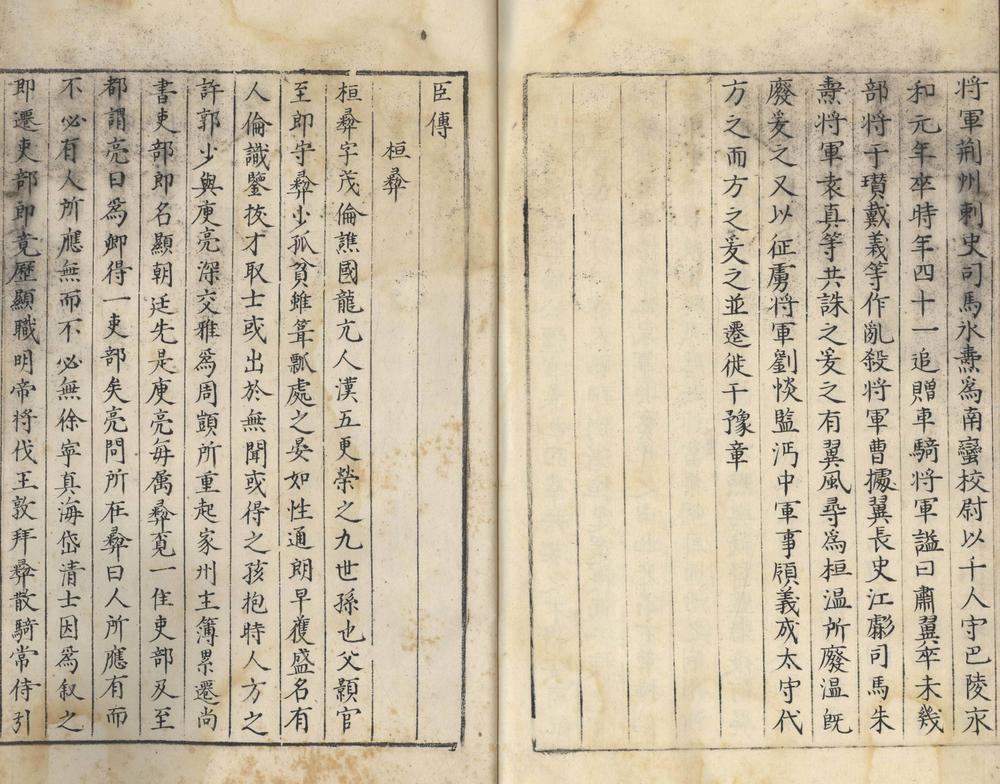 将軍荆州刺史司馬氷燾爲南蠻校尉以千人守巴陵永
和元年卒時年四十一追贈車騎将軍謚曰肅翼卒未幾
部将于瓉戴義等作亂殺将軍曹據翼長史江虨司馬朱
燾将軍袁真等共誅之爰之有翼風尋爲桓温所廢温旣
廢爰之又以征虜将軍劉惔監沔中軍事領義成太守代
方之而方之爰之並遷徙于豫章
臣傳
桓彝
桓彝字茂倫譙國龍亢人漢五更榮之九世孫也父顥官
至郎守彝少孤貧雖簞瓢處之晏如性通朗早獲盛名有
人倫識鑒拔才取士或出於無聞或得之孩抱時人方之
許郭少與庾亮深交雅爲周顗所重起家州主簿累遷尚
書吏部郎名顯朝廷先是庾亮每属彝覓一佳吏部及至
都謂亮曰爲卿得一吏部矣亮問所在彝曰人所應有而
不必有人所應無而不必無徐寧真海岱清士因爲叙之
即遷吏部郎竟歷顯職明帝将伐王敦拜彝散騎常侍引